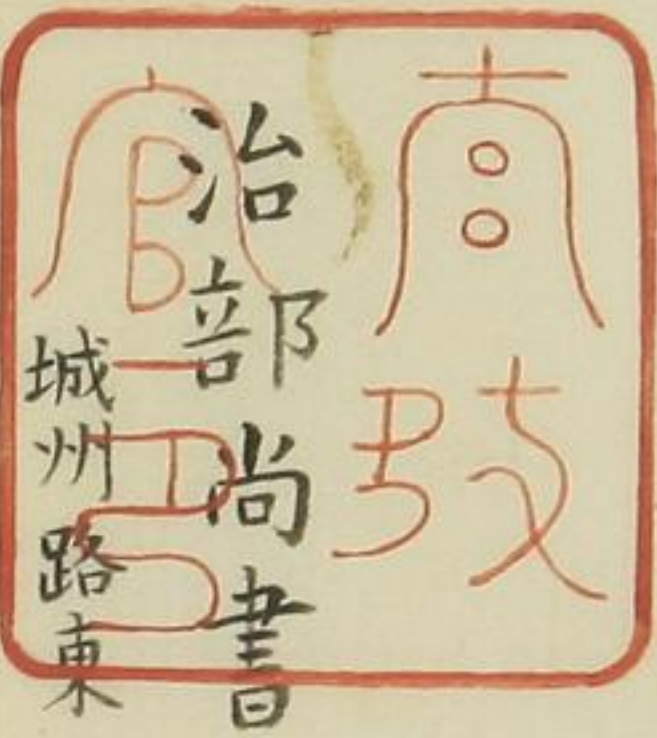 官印
治部尚書
城州路東